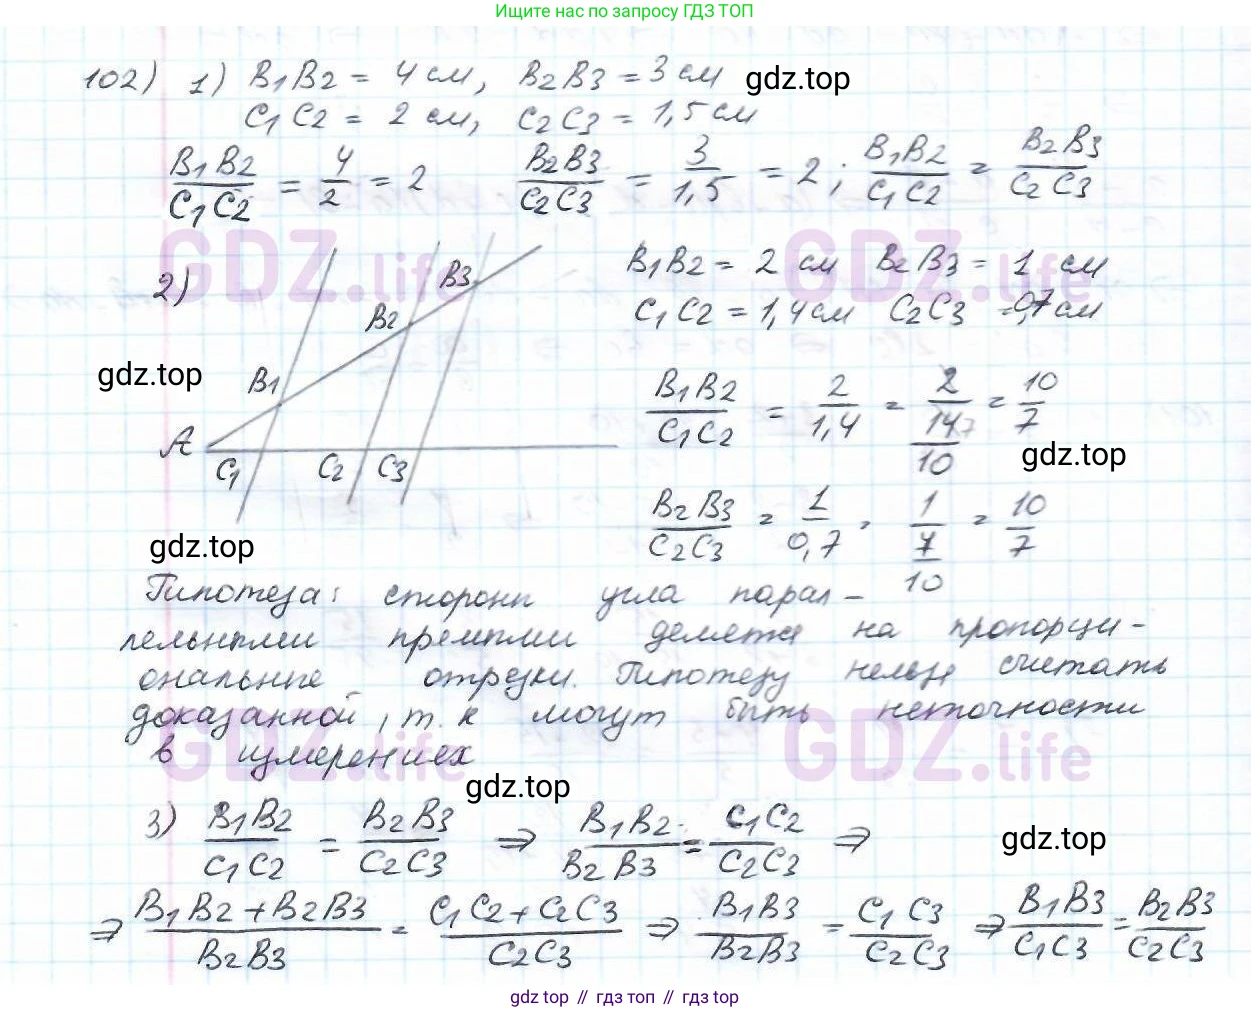 Ищите нас по запросу ГДЗ ТОП
102) 1) B₁B₂ = 4 см, B₂B₃ = 3 см gdz.top
C₁C₂ = 2 см, C₂C₃ = 1,5 см
B₁B₂/C₁C₂ = 4/2 = 2 B₂B₃/C₂C₃ = 3/1,5 = 2; B₁B₂/C₁C₂ = B₂B₃/C₂C₃
GDZ.life GDZ.life
2) B₁B₂ = 2 см B₂B₃ = 1 см
C₁C₂ = 1,4 см C₂C₃ = 0,7 см
B₃
B₂
B₁
A
C₁ C₂ C₃
gdz.top
B₁B₂/C₁C₂ = 2/1,4 = 2/(14/10) = 10/7
gdz.top
B₂B₃/C₂C₃ = 1/0,7 = 1/(7/10) = 10/7
gdz.top
Гипотеза: стороны угла парал-
лельными прямыми делятся на пропорци-
ональные отрезки. Гипотезу нельзя считать
доказанной, т.к могут быть неточности
в измерениях
GDZ.life GDZ.life
gdz.top
3) B₁B₂/C₁C₂ = B₂B₃/C₂C₃ ⇒ B₁B₂/B₂B₃ = C₁C₂/C₂C₃ ⇒
gdz.top
⇒ (B₁B₂+B₂B₃)/B₂B₃ = (C₁C₂+C₂C₃)/C₂C₃ ⇒ B₁B₃/B₂B₃ = C₁C₃/C₂C₃ ⇒ B₁B₃/C₁C₃ = B₂B₃/C₂C₃
gdz top // гдз топ // gdz top